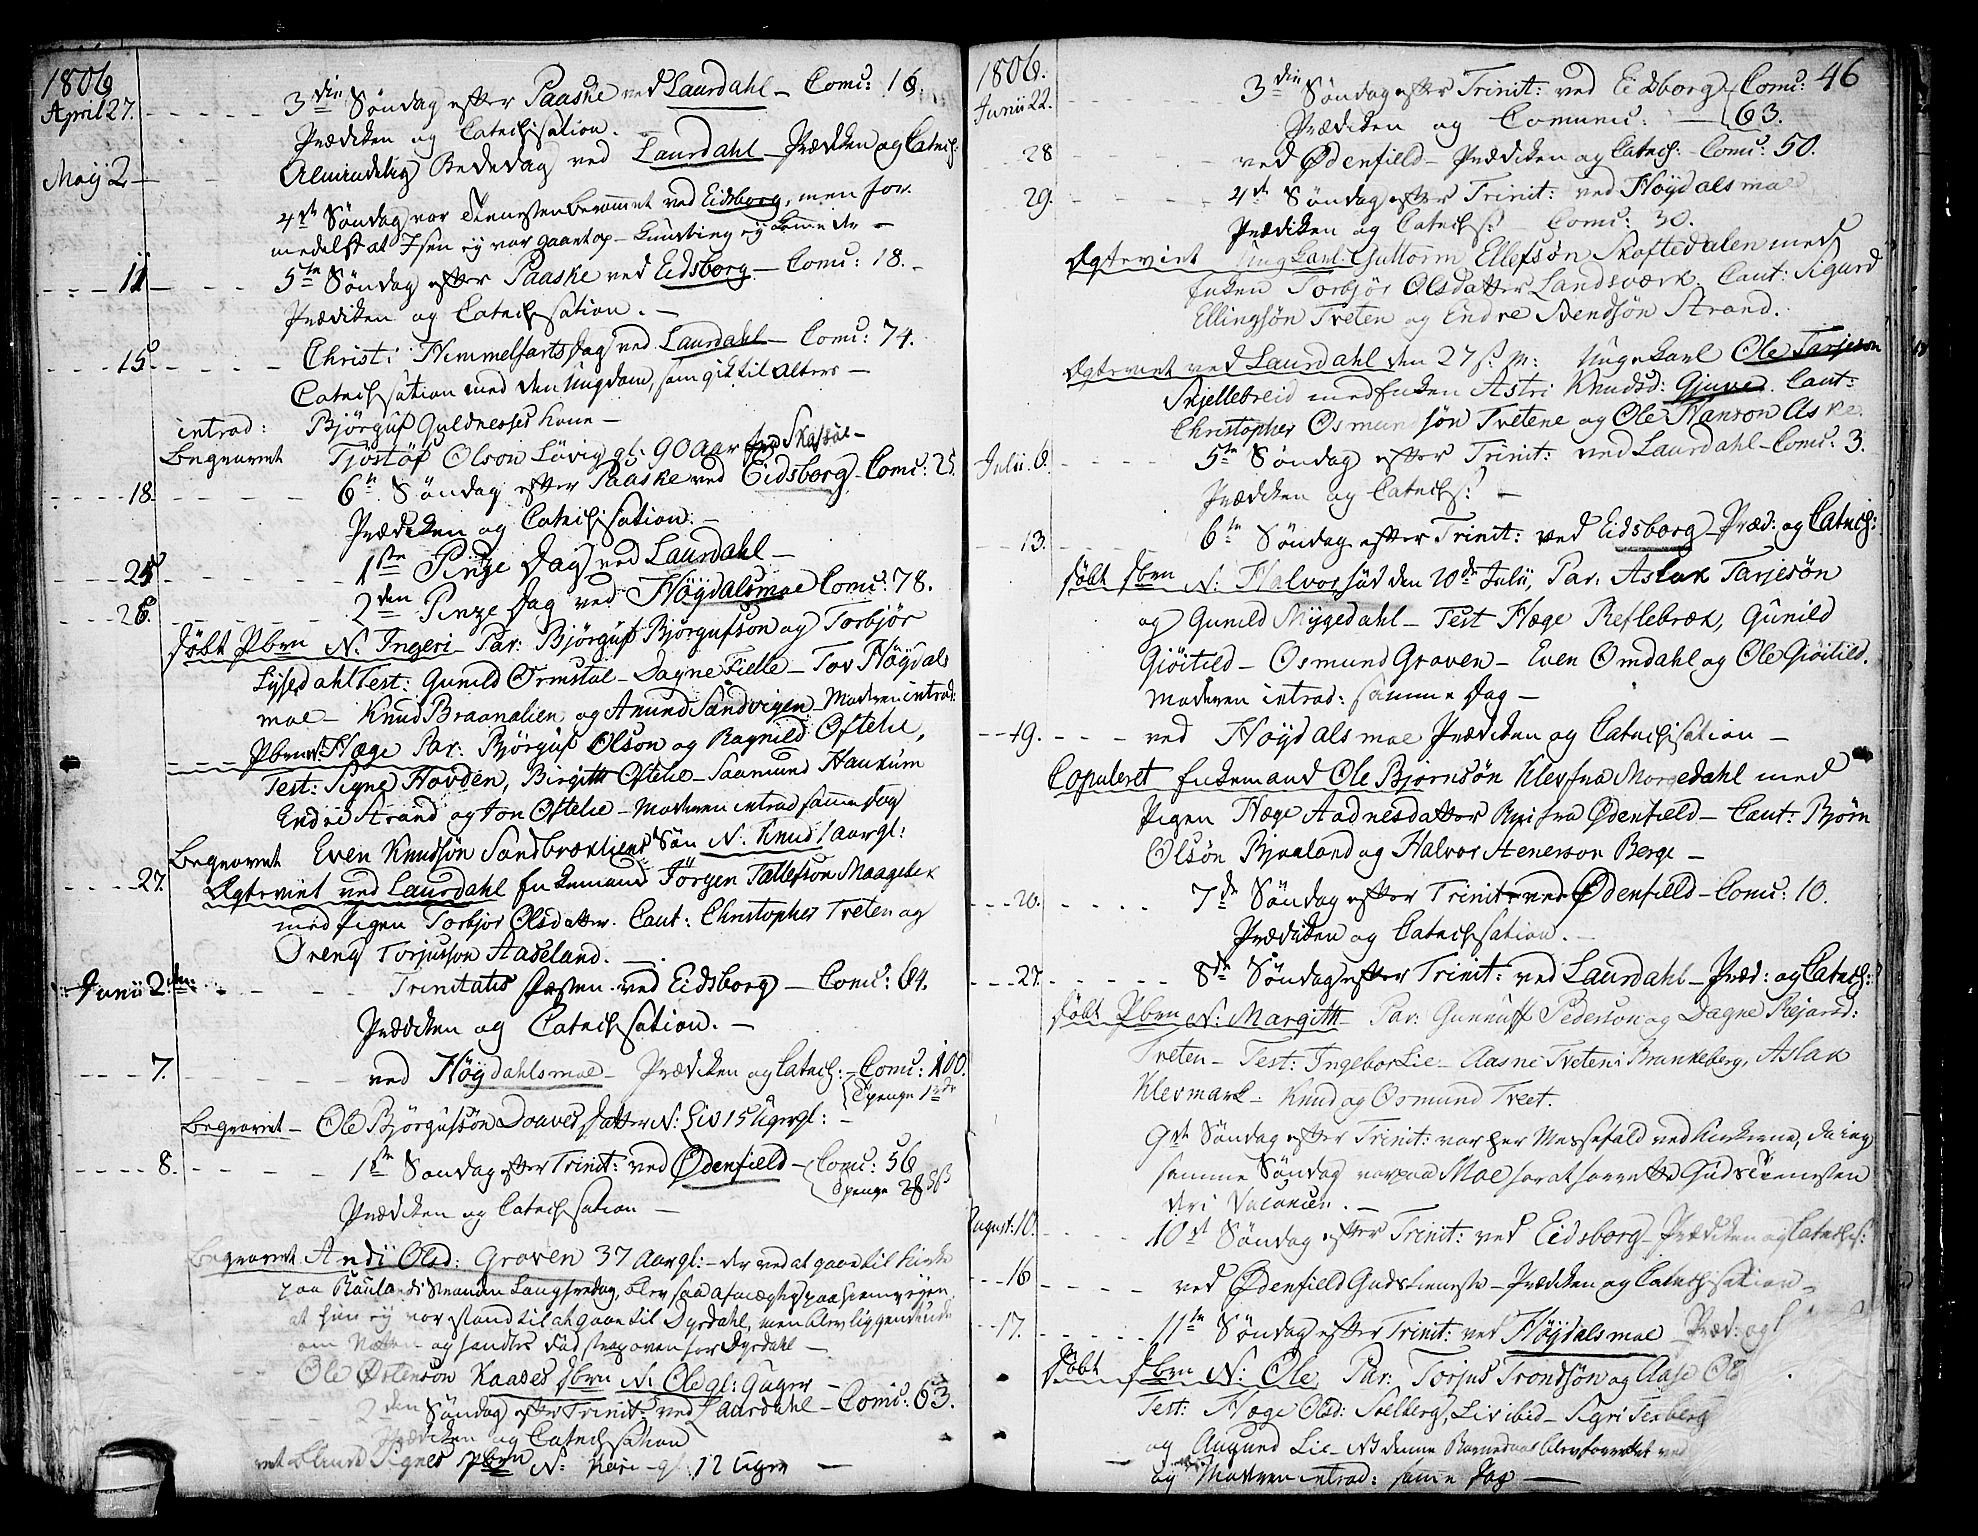 1806
April 27. 3 din Søndag efter Paaske ved Laurdahl - Com̃: 16.
Prædiken og Catechisation. -
Maij 2 - Almindelig Bededag ved Laurdahl - Prædiken og Catech:
4 de Søndag var Tienesten berammet ved Eidsborg, men for-
medelst at Isen ej var gaaen op - Kunde ing ej komme der -
11 - 5 te Søndag efter Paaske ved Eidsborg - Com̃: 18. -
Prædiken og Catechisation. -
15. Christi Himmelfarts Dag ved Laurdahl - Com̃: 74.
Catechisation med den Ungdom, som gik til Alters -
introd: Bjørguf Guldnesses Kone -
Begravet Tjøstøf Olson Løvig gl: 90 Aar fra Skafsøe -
18. 6 te Søndag efter Paaske ved Eidsborg - Com̃: 25.
Prædiken og Catechisation. -
25 1 ste Pinze Dag ved Laurdahl -
26. 2 den Pinze Dag ved Høydalsmoe Com̃: 78.
Døbt Pbrn N: Ingeri - Par: Bjørguf Bjørgufson og Torbjør
Lysedahl Test: Gunild Ormstøl - Dagne Fielle - Tov Høydals
moe - Knud Braanalien og Amund Sandvigen - Moderen introd:
Pbrn N: Hæge Par: Bjørguf Olson og Ragnild Oftelie,
Test: Signe Hovden, Birgith Oftelie - Saamund Haukum
Endre Strand og Jon Oftelie - Moderen introd samme Dag
Begravet Even Knudsøn Sandbrækliens Søn N: Knud 1 Aar gl:
27. Egteviet ved Laurdahl Enkemand Jørgen Tallefson Maagelie
med Pigen Torbjør Olsdatter. Caut: Christopher Treten og
Dreng Torjusson Aaseland. -
Junii 2 den: Trinitatis Festen ved Eidsborg - Com̃: 64.
Prædiken og Catechisation. -
7. ved Høydahlsmoe - Prædiken og Catech: - Com̃: 100.
Penge 1 rdr
Begravet - Ole Bjørgufsøn Doaves Datter N: Liv 15 Uger gl: -
8. 1 ste Søndag efter Trinit: ved Ødenfield - Com̃: 56
Prædiken og Catechisation -
Begravet Andi Olsd: Groven 37 Aar gl: - der ved at gaae til Kirke
paa Rauland Langfredag, blev saa afmægtig paa Hiemvejen
at hun ej var stand til at gaae til Dyrdahl, men blev liggende ude
om Natten - og fandtes død strax oven for Dyrdahl -
Ole Østenson Kaases Dbrn N: Ole gl: 9 Uger -
2 den Søndag efter Trinit: ved Laurdahl - Com̃: 63.
Prædiken og Catechisation
Signes Pbrn N: Kari - gl: 12 Uger -
1806. 46
Junii 22. 3 die Søndag efter Trinit: ved Eidsborg Com̃:
Prædiken og Communi: - 63.
28 ved Ødenfield - Prædiken og Catech: Com̃: 50.
29. 4 de Søndag efter Trinit: ved Høydalsmoe
Prædiken og Catech: - Com̃: 30.
Egteviet Ung Karl Guttorm Ellefsøn Skoftedalen med
Enken Torbjør Olsdatter Landsværk. Caut: Sigurd
Ellingsøn Treten og Endre Svendsøn Strand.
Egteviet ved Laurdahl den 27 s: m: Unge Karl Ole Tarjeson
Skjellebreid med Enken Astri Knudsd: Gjuve. Caut:
Christopher Osmundsøn Tvetene og Ole Hanson Aske.
Julii 6. 5 te Søndag efter Trinit: ved Laurdahl - Com̃: 3.
Prædiken og Catechs: -
13. 6 te Søndag efter Trinit: ved Eidsborg - Præd: og Catech:
Døbt Dbrn N: Halvor fød den 10 de Julii, Par: Aslak Tarjesøn
og Gunild Mygedahl - Test Hæge Reflebræk, Gunild
Gjøitild - Osmund Groven - Even Omdahl og Ole Gjøitild.
Moderen introd: samme Dag -
19. ved Høydalsmoe Prædiken og Catechisation -
Copuleret Enkemand Ole Bjørnsøn Klev fra Morgedahl med
Pigen Hæge Aadnesdatter Rui fra Ødenfield - Caut: Bjørn
Olsøn Bjaaland og Halvor Stenerson Berge -
20. 7 de Søndag efter Trinit: ved Ødenfield - Com̃: 10.
Prædiken og Catechisation. -
27. 8 de Søndag efter Trinit: ved Laurdahl - Præd: og Catech:
Døbt Pbrn N: Margith - Par: Gunnuff Pederson og Dagne Rejarsd:
Treten - Test: Ingebor Lie - Aasne Tveten i Brunkeberg, Aslak
Klevmark - Knud og Osmund Treet.
9 de Søndag efter Trinit: var her Messefald ved Kirkerne, da jeg
samme Søndag var paa Moe for at forrette Gudstienesten
der i Vacancien. -
August: 10. 10 de Søndag efter Trinit: ved Eidsborg - Prædiken og Catechs:
16 ved Ødenfield Gudstieneste - Prædiken og Catechisation -
17. 11 te Søndag efter Trinit: ved Høydalsmoe Præd: og
Døbt Dbrn N: Ole Par: Torjus Trondsøn og Aase
Test: Hæge Olsd: Stelberg, Liv ibid - Sigri Texberg
og Augund Lie - NB denne Barnedaab blev forrettet ved
og Moderen introd: samme Dag -